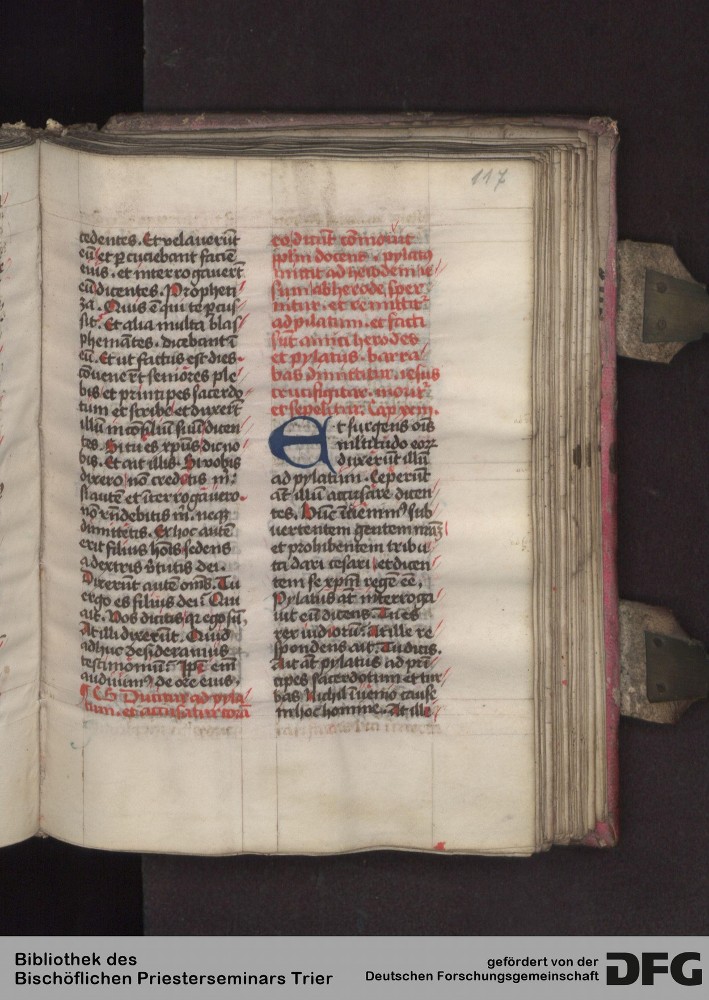 117
cedentes. Et velaverūt
eū et ꝑcuciebant faciē
eius. et interrogaverūt
eū dicentes. Propheti
za. Quis ē qui te ꝑcus
sit. Et alia multa blas
phemātes. dicebant ī
eū. Et ut factus est dies.
cōvenerūt seniores ple
bis et principes sacerdo
tum et scribe et duxerūt
illū in cōsiliū suū dicen
tes. Si tu es xpūs dic no
bis. Et ait illis. Si vobis
dixero nō credetis m̄.
si autē et īterrogavero.
nō rn̄debitis m̄. neqꝫ
dimittetis. Ex hoc autē
erit filius hoīs sedens
a dextris v̄tutis dei.
Dixerūt autē om̄s. Tu
ergo es filius dei. Qui
ait. Vos dicitis qꝛ ego sū.
At illi dixerūt. Quid
adhuc desideramus
testimoniū. Ip̄i em̄
audivimꝰ de ore eius.
Ducitur ad pyla
tum. et accusatur
docens. pylatꝰ
mittit ad herodem
sum ab herode sper
nitur. et remittitᷣ
ad pylatum. et facti
sūt amici herodes
et pylatus. barra
bas dimittitur. iesus
crucifigitur. moritᷣ
et sepelitur. Cap
Et surgens om̄s
multitudo eoꝝ
duxerūt illū
ad pylatum. Ceperūt
āt illū accusare dicen
tes. Hūc īvenimꝰ sub
vertentem gentem nr̄aꝫ
et prohibentem tribu
ta dari cesari et dicen
tem se xpm̄ regē eē.
Pylatus āt interroga
vit eū dicens. Tu es
rex iudeorū. At ille re
spondens ait. Tu dicis.
Ait āt pylatus ad prī
cipes sacerdotum et tur
bas. Nichil īvenio cause
in hoc homine. At ille
Bibliothek des
Bischöflichen Priesterseminars Trier
gefördert von der
Deutschen Forschungsgemeinschaft
DFG